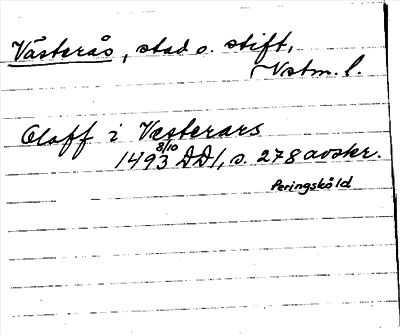 Västerås, stad o. stift,
Vstm. l.
Olaff i Vesterars
1493 8/10 DD1, s. 278 avskr.
Peringsköld